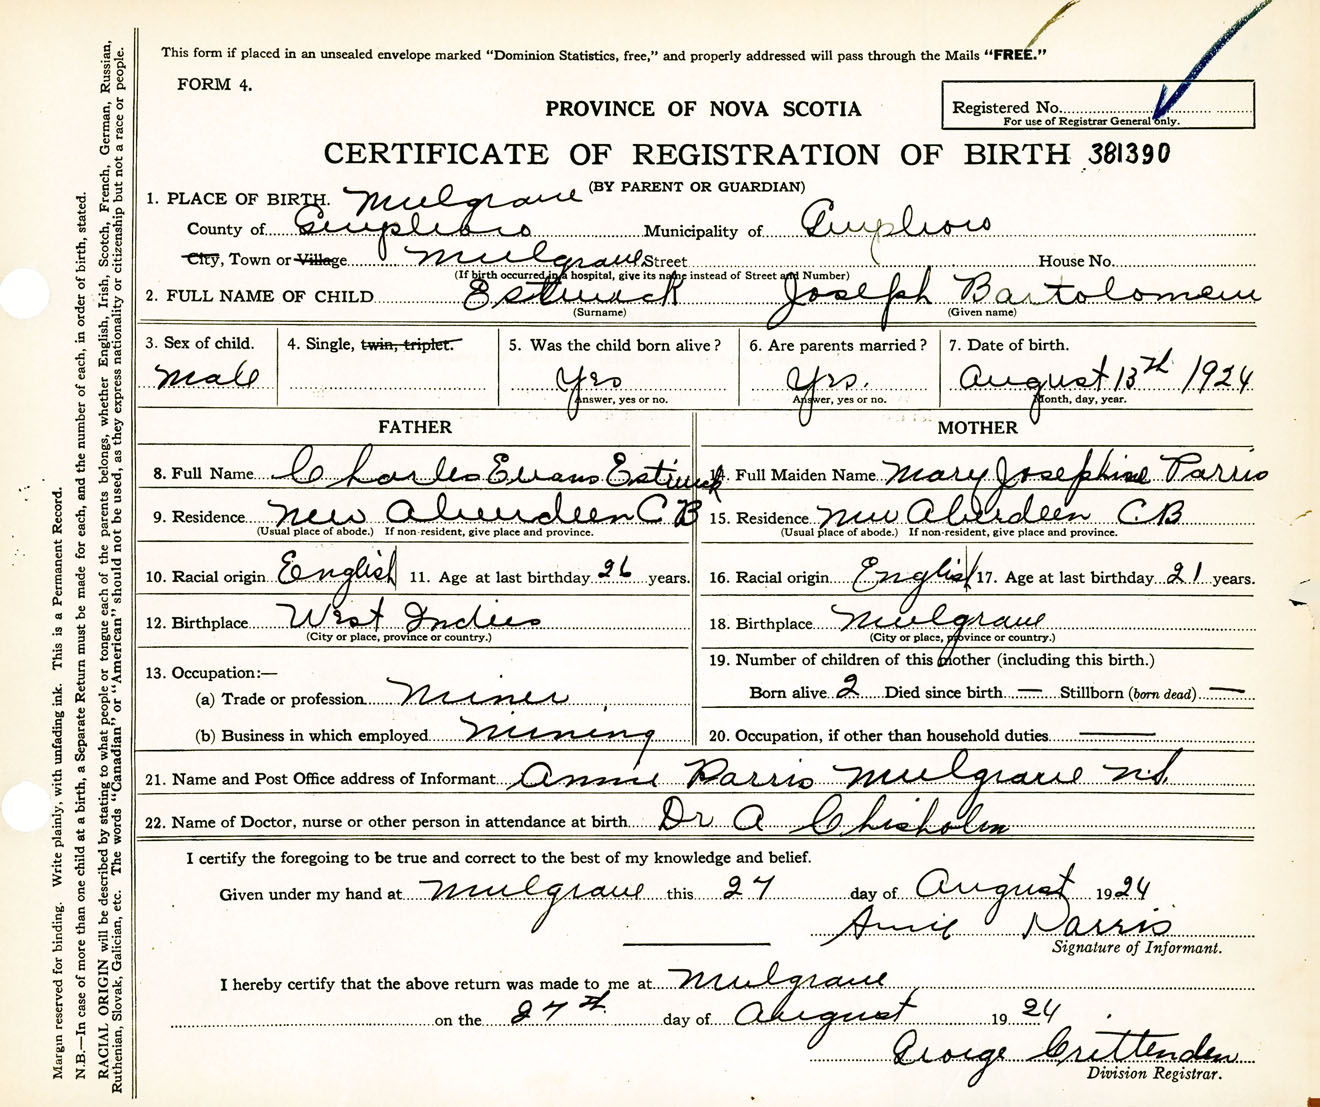 This form if placed in an unsealed envelope marked "Dominion Statistics, free," and properly addressed will pass through the Mails "FREE."
FORM 4.
PROVINCE OF NOVA SCOTIA
Registered No.
For use of Registrar General only.
CERTIFICATE OF REGISTRATION OF BIRTH 381390
(BY PARENT OR GUARDIAN)
1. PLACE OF BIRTH. Mulgrave
County of Guysboro Municipality of Guysboro
City, Town or Village Mulgrave Street House No.
(If birth occurred in a hospital, give its name instead of Street and Number)
2. FULL NAME OF CHILD Estwick Joseph Bartolomew
(Surname) (Given name)
3. Sex of child. 4. Single, twin, triplet. 5. Was the child born alive? 6. Are parents married? 7. Date of birth.
Male Yes Yes. August 13th 1924
Answer, yes or no. Answer, yes or no. Month, day, year.
FATHER MOTHER
8. Full Name Charles Evans Estwick 14. Full Maiden Name Mary Josephine Parris
9. Residence New Aberdeen C B 15. Residence New Aberdeen C B
(Usual place of abode.) If non-resident, give place and province. (Usual place of abode.) If non-resident, give place and province.
10. Racial origin English 11. Age at last birthday 26 years. 16. Racial origin English 17. Age at last birthday 21 years.
12. Birthplace West Indies 18. Birthplace Mulgrave
(City or place, province or country.) (City or place, province or country.)
13. Occupation:— 19. Number of children of this mother (including this birth.)
(a) Trade or profession Miner Born alive 2 Died since birth — Stillborn (born dead) —
(b) Business in which employed Mining 20. Occupation, if other than household duties —
21. Name and Post Office address of Informant Annie Parris Mulgrave N.S.
22. Name of Doctor, nurse or other person in attendance at birth Dr A Chisholm
I certify the foregoing to be true and correct to the best of my knowledge and belief.
Given under my hand at Mulgrave this 27 day of August 1924
Annie Parris
Signature of Informant.
I hereby certify that the above return was made to me at Mulgrave
on the 27th day of August 1924
George Crittenden
Division Registrar.
Margin reserved for binding. Write plainly, with unfading ink. This is a Permanent Record.
N.B.—In case of more than one child at a birth, a Separate Return must be made for each, and the number of each, in order of birth, stated.
RACIAL ORIGIN will be described by stating to what people or tongue each of the parents belongs, whether English, Irish, Scotch, French, German, Russian,
Ruthenian, Slovak, Galician, etc. The words "Canadian" or "American" should not be used, as they express nationality or citizenship but not a race or people.